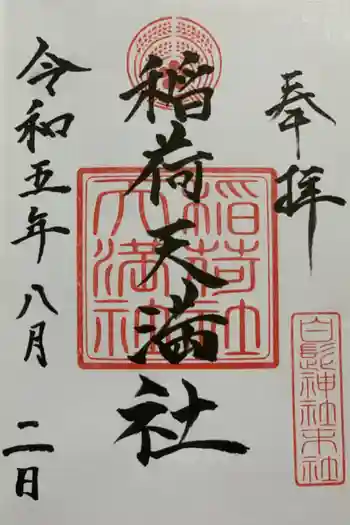 奉拝
白髭神社末社
稲荷天満社
稲荷社
天満神社
令和五年八月二日